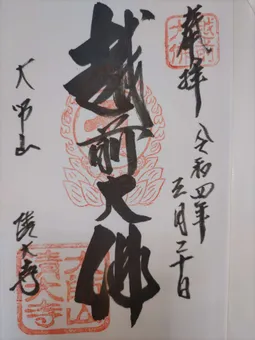 奉拝
令和四年
月二十日
越前大佛
大师山
清大寺
越前
大佛
大師山
清大寺